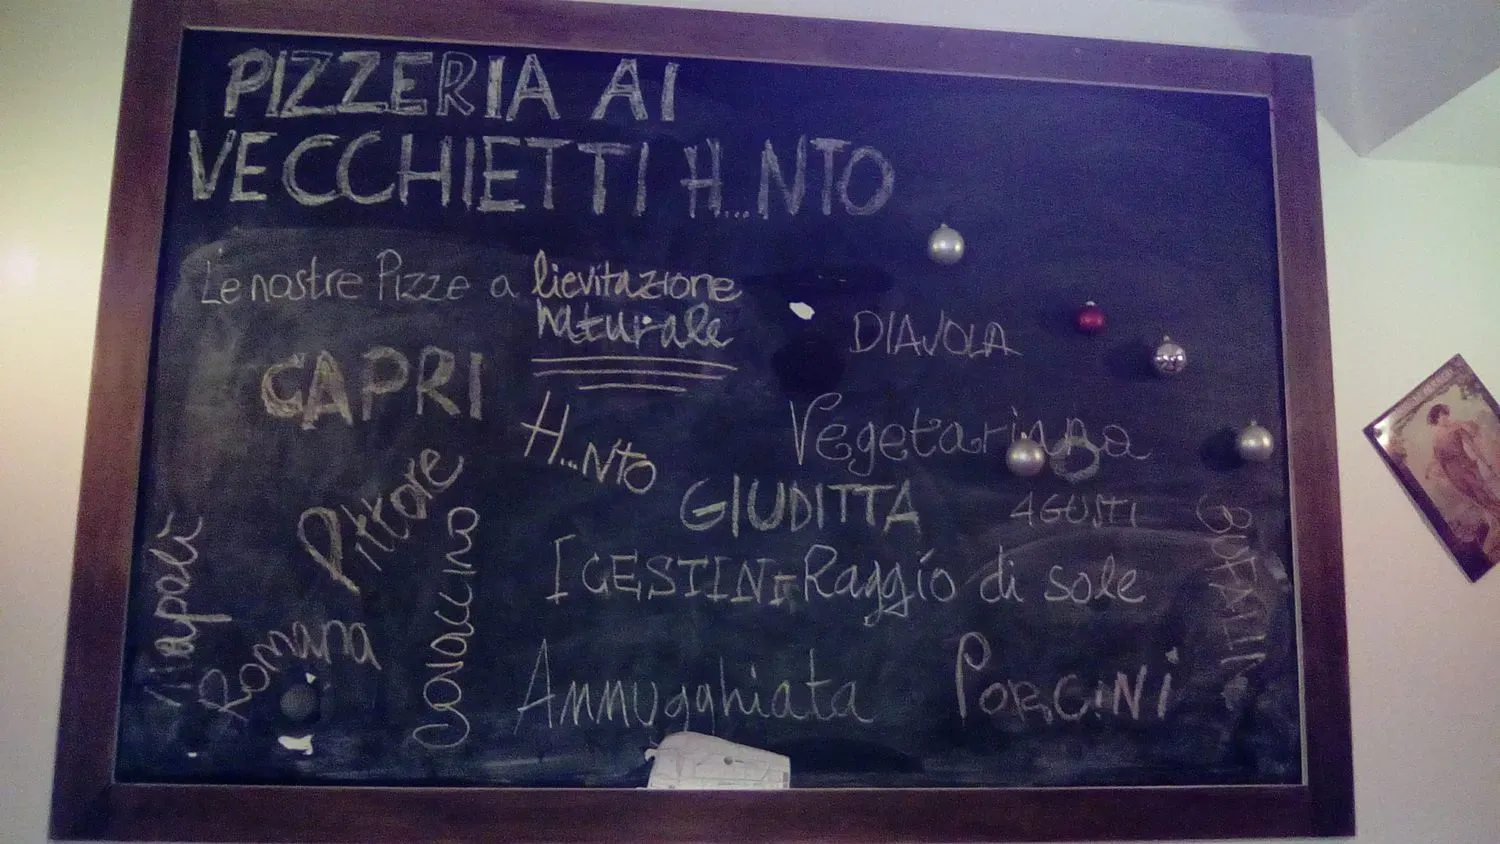 PIZZERIA AI
VECCHIETTI H...NTO
Le nostre Pizze a lievitazione
naturale
DIAVOLA
CAPRI
H...NTO
Vegetariana
Pittore
GIUDITTA
4 GUSTI
Napoli
CavaCCINO
I CESTINI
Raggio di sole
BUFALINA
Romana
Ammugghiata
PORCINI